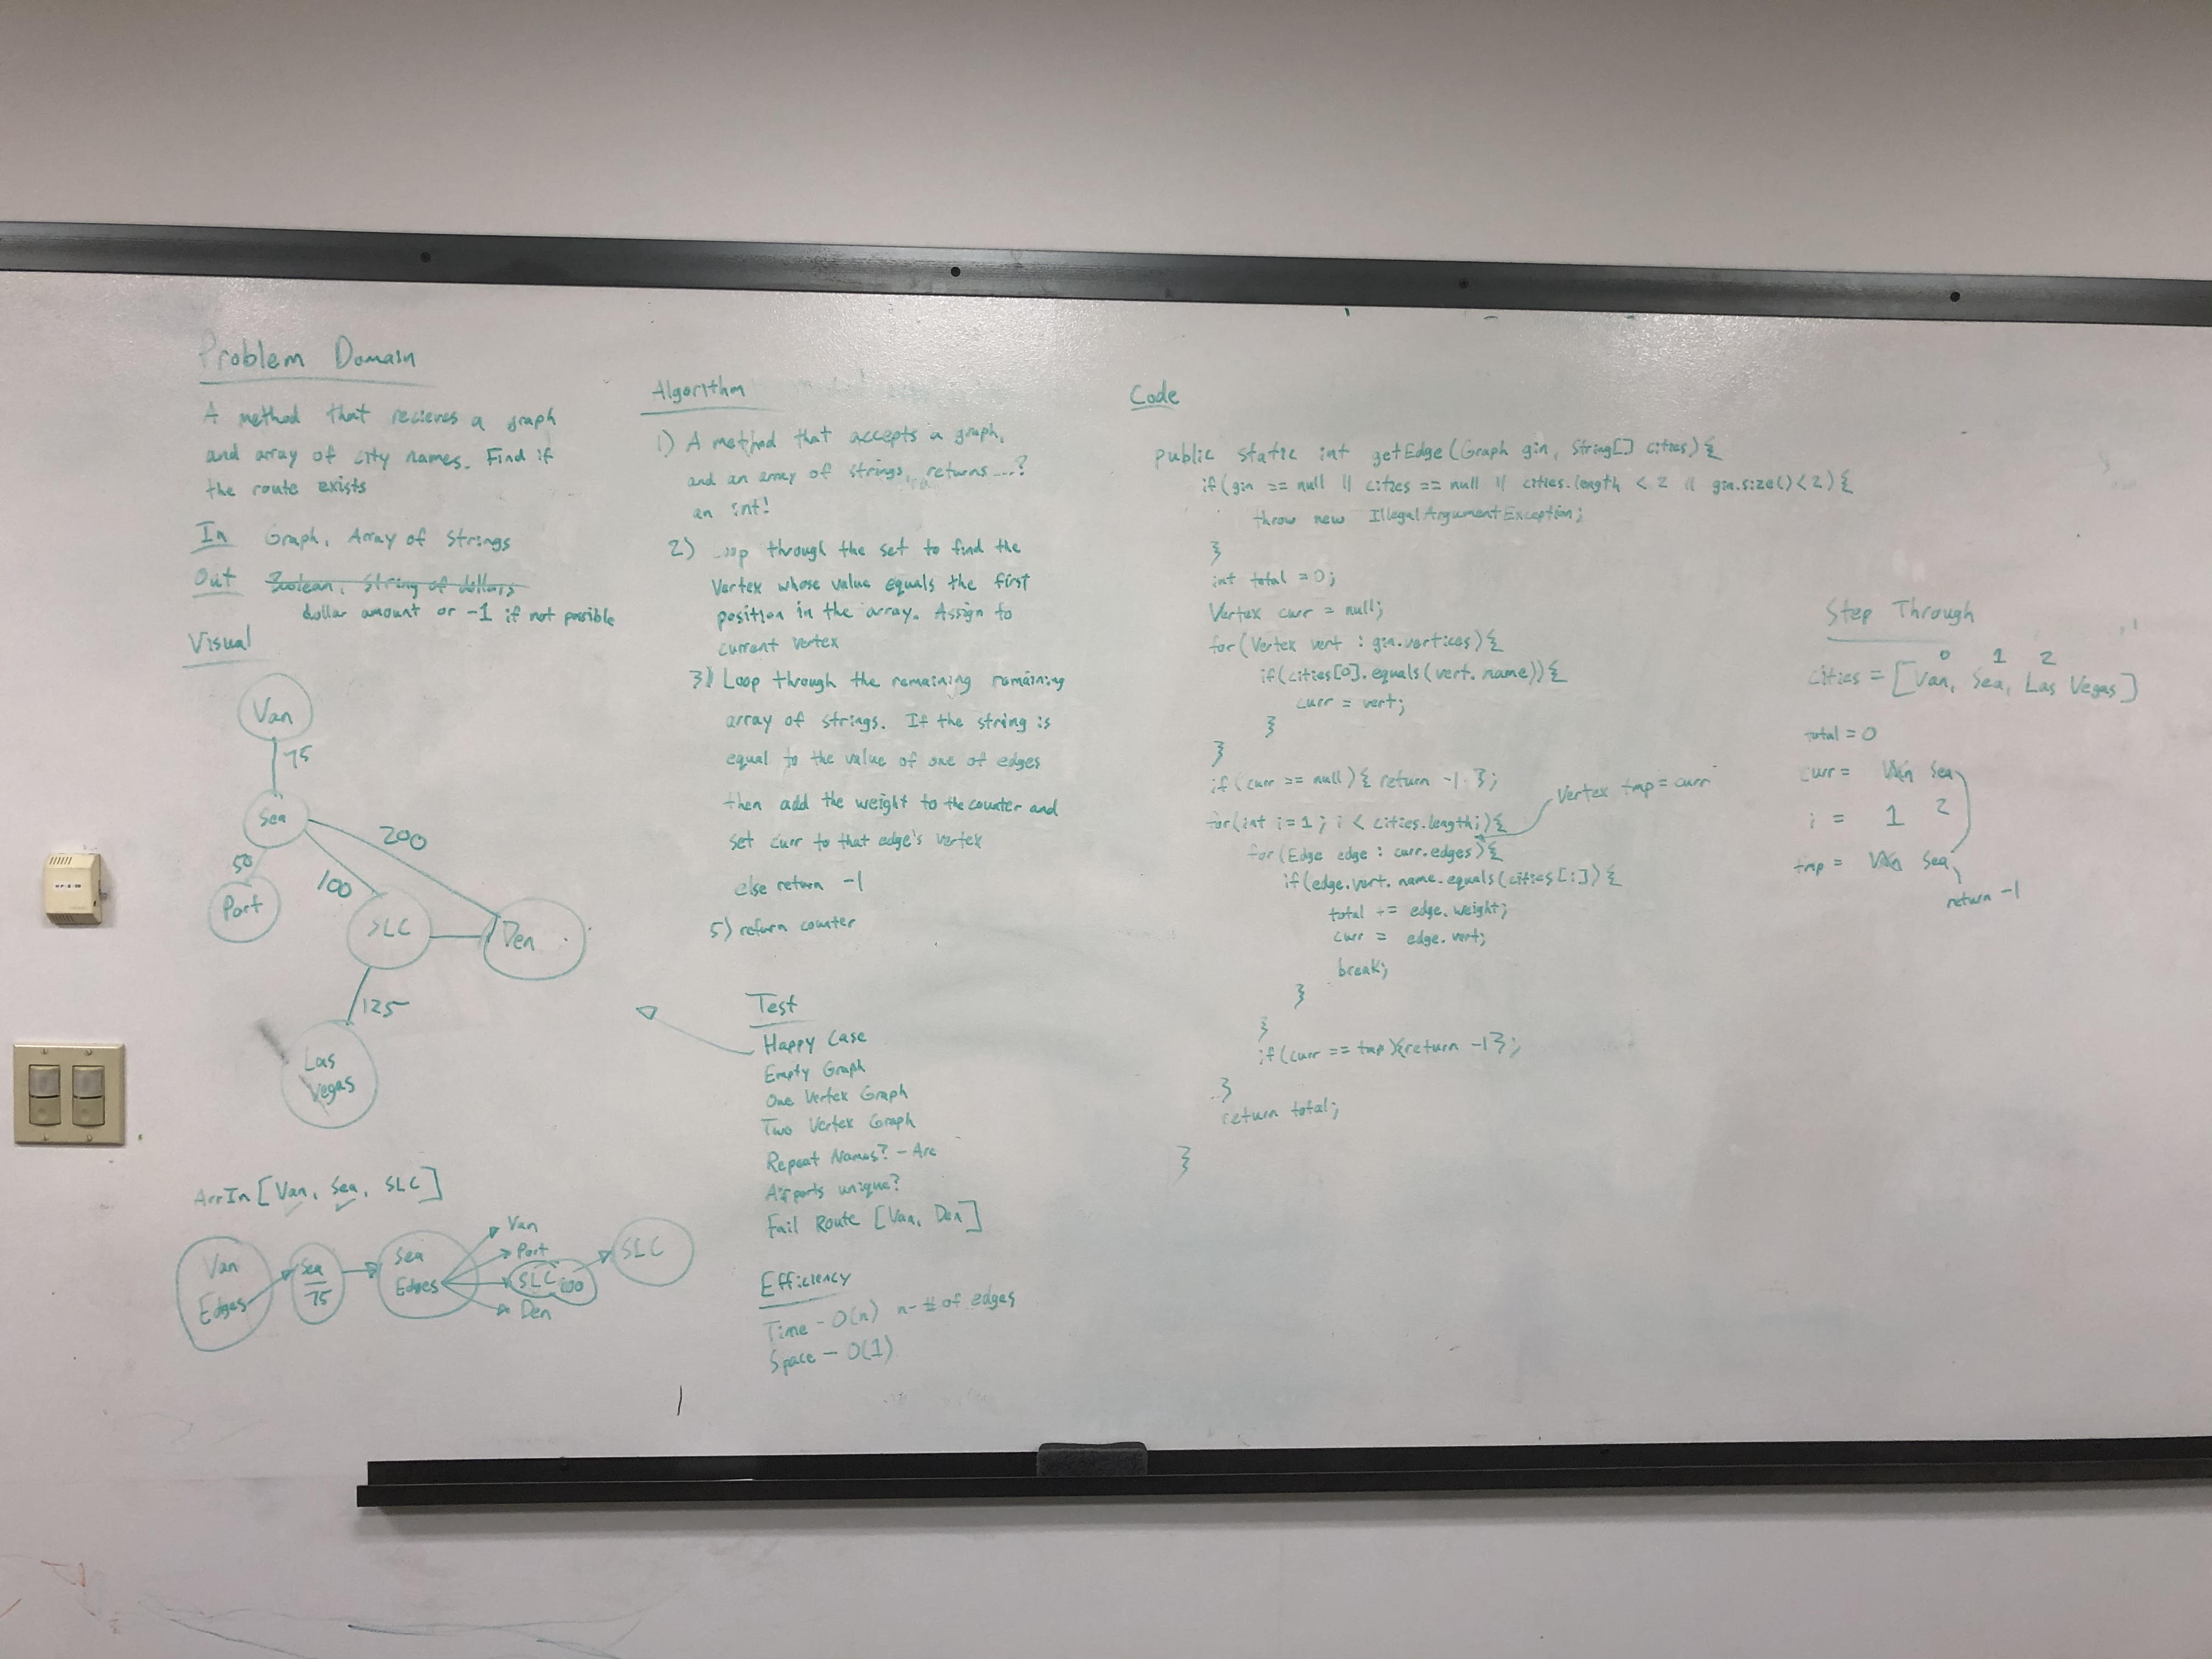 Problem Domain
A method that recieves a graph
and array of city names. Find if
the route exists
In Graph, Array of Strings
Out Boolean, String of dollars
dollar amount or -1 if not possible
Visual
Van
75
Sea
200
50
100
Port
SLC
Den
125
Las
Vegas
ArrIn [Van, Sea, SLC]
Van
Edges
Sea
75
Sea
Edges
Van
Port
SLC 100
Den
SLC
Algorithm
1) A method that accepts a graph,
and an array of strings, returns....?
an int!
2) Loop through the set to find the
Vertex whose value equals the first
position in the array. Assign to
current vertex
3) Loop through the remaining remaining
array of strings. If the string is
equal to the value of one of edges
then add the weight to the counter and
set curr to that edge's vertex
else return -1
5) return counter
Test
Happy Case
Empty Graph
One Vertex Graph
Two Vertex Graph
Repeat Names? - Are
Airports unique?
Fail Route [Van, Den]
Efficiency
Time - O(n) n - # of edges
Space - O(1)
Code
public static int getEdge(Graph gin, String[] cities){
if(gin == null || cities == null || cities.length < 2 || gin.size()<2){
throw new IllegalArgumentException;
}
int total = 0;
Vertex curr = null;
for(Vertex vert : gin.vertices){
if(cities[0].equals(vert.name)){
curr = vert;
}
}
if(curr == null){ return -1 };
Vertex tmp = curr
for(int i=1; i < cities.length;){
for(Edge edge : curr.edges){
if(edge.vert.name.equals(cities[i]){
total += edge.weight;
curr = edge.vert;
break;
}
}
if(curr == tmp){return -1};
}
return total;
}
Step Through
0 1 2
cities = [Van, Sea, Las Vegas]
total = 0
curr = Van Sea
i = 1 2
tmp = Van Sea
return -1